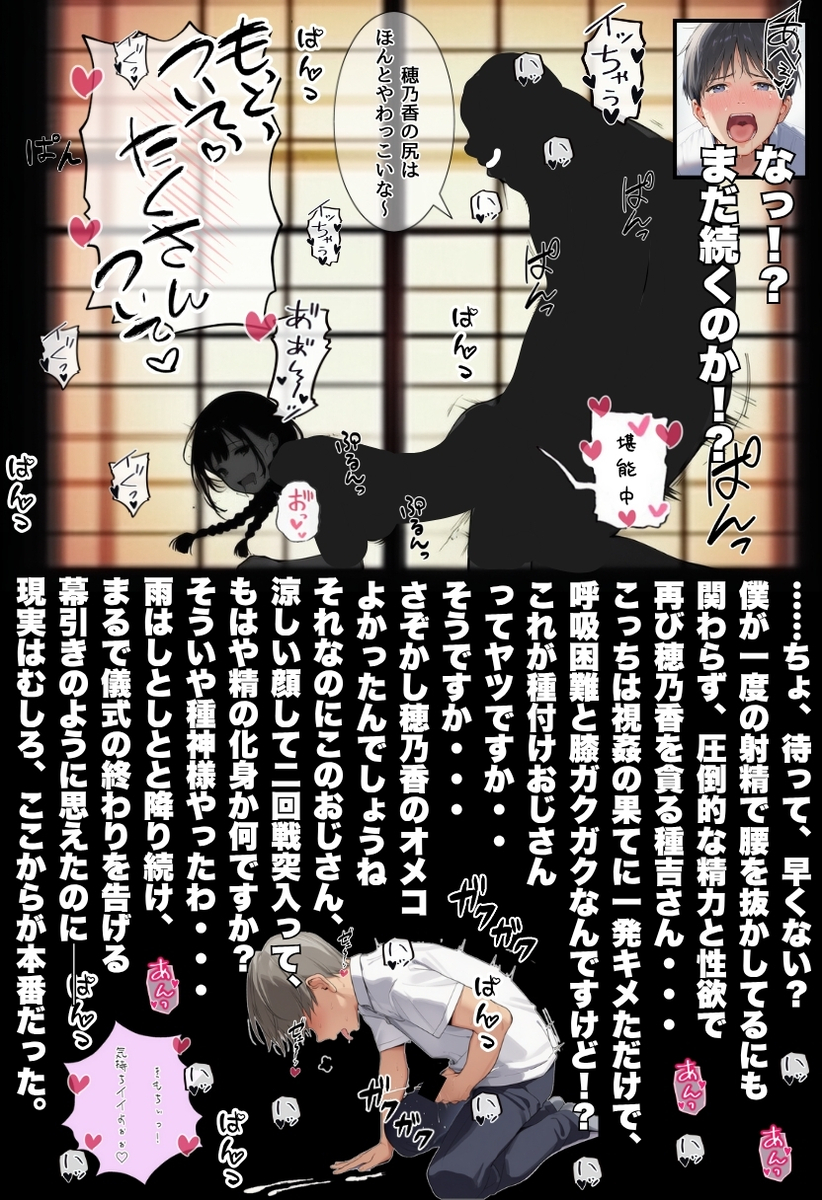 なっ！？
まだ続くのか！？
イッちゃう
穂乃香の尻は
ほんとやわっこいな～
もっと、
ついてぇ♡
たくさん
ついて♡
ぱんっ
ぱん
ぱんっ
ぱんっ
イッちゃう
ぱんっ
ぱんっ
ぱんっ
ぷるんっ
ぷるんっ
おっ
堪能中
……ちょ、待って、早くない？
僕が一度の射精で腰を抜かしてるにも
関わらず、圧倒的な精力と性欲で
再び穂乃香を貪る種吉さん・・・
こっちは視姦の果てに一発キメただけで、
呼吸困難と膝ガクガクなんですけど！？
これが種付けおじさん
ってヤツですか・・
そうですか・・・
さぞかし穂乃香のオメコ
よかったんでしょうね
それなのにこのおじさん、
涼しい顔して二回戦突入って、
もはや精の化身か何ですか？
そういや種神様やったわ・・・
雨はしとしとと降り続け、
まるで儀式の終わりを告げる
幕引きのように思えたのに──
現実はむしろ、ここからが本番だった。
ガクガク
ガクガク
ぱんっ
ぱんっ
ぱんっ
あんっ
あんっ
あんっ
きもちぃっ！
気持ちイイよぉぉ♡